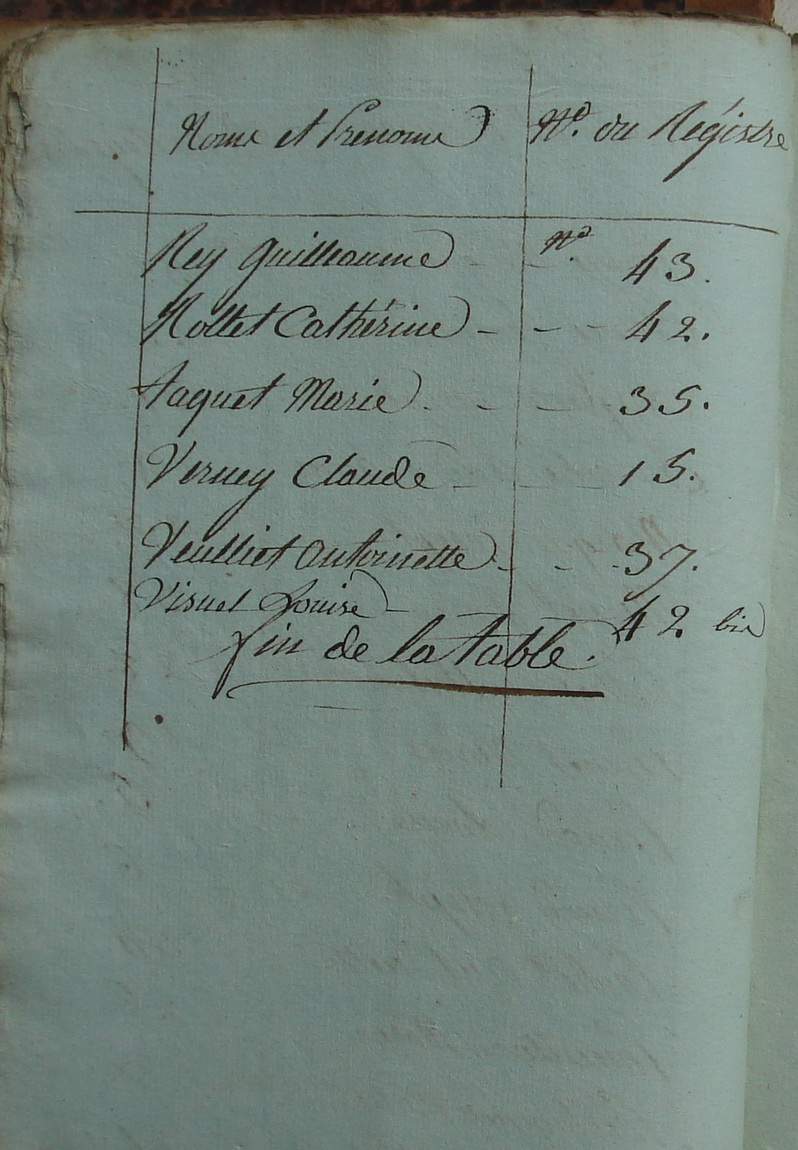 Noms et Prenoms N.º du Régistre
Rey Guilleaume - N.º 43.
Rollet Cathérine - - - 42.
Taquet Marie - - - 35.
Verney Claude - - - 15.
Veulliet Antoinette - - - 37.
Visuel Louise - 42 bis
fin de la table.